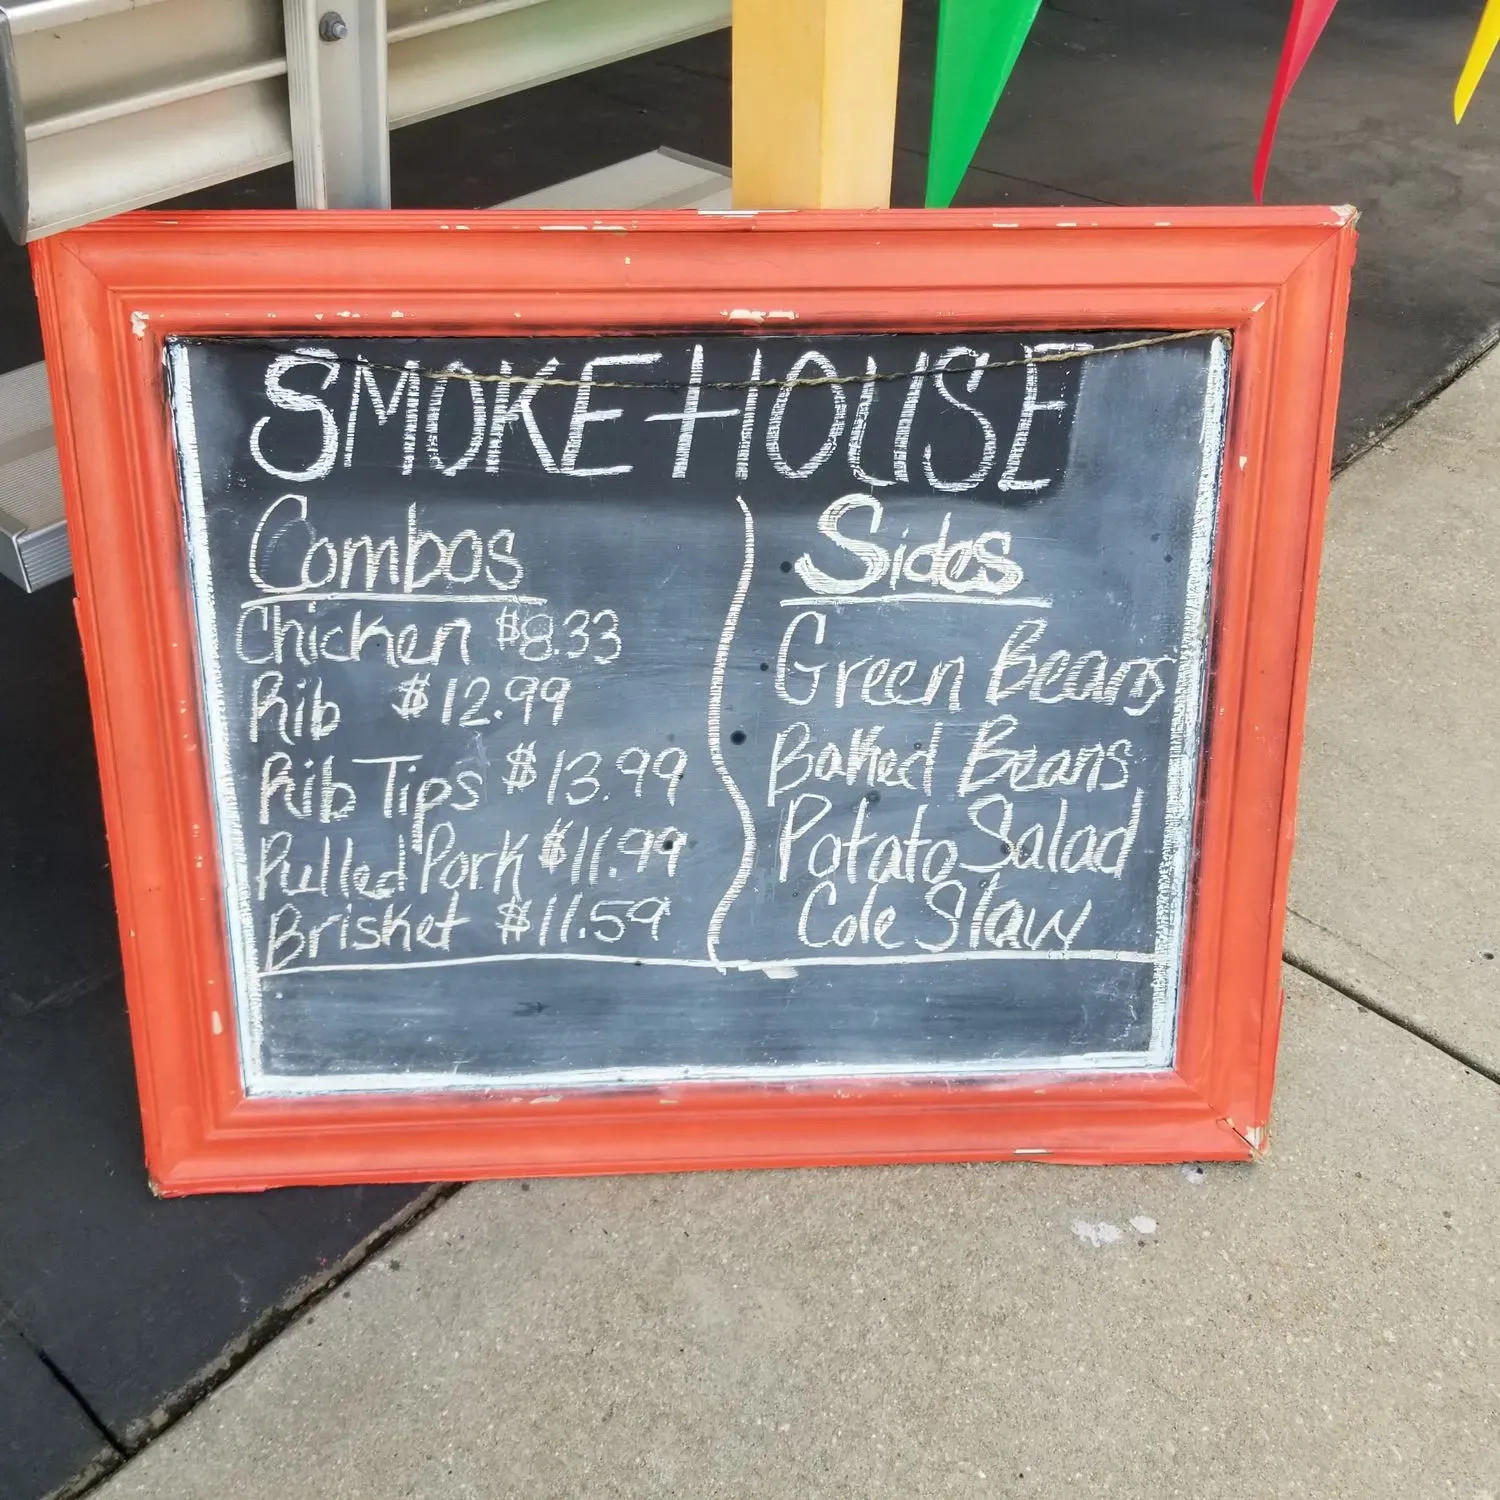 SMOKEHOUSE
Combos
Chicken $8.33
Rib $12.99
Rib Tips $13.99
Pulled Pork $11.99
Brisket $11.59
Sides
Green Beans
Baked Beans
Potato Salad
Cole Slaw